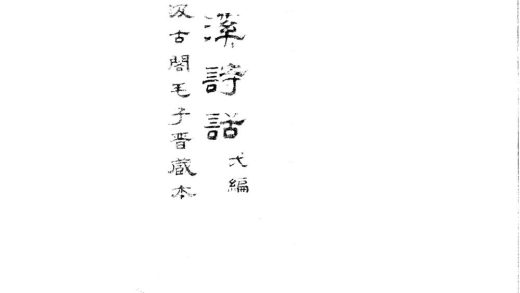 溪詩話
編
汲古閣毛子晉藏本